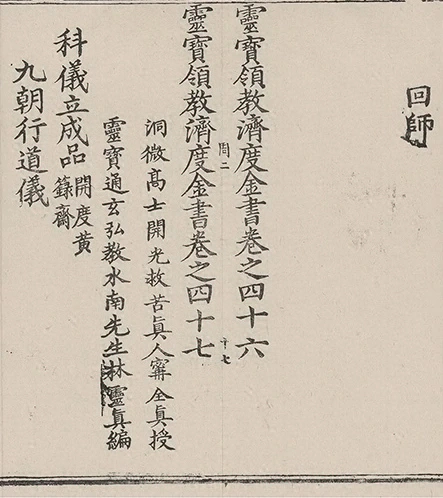 回師
靈寶領教濟度金書卷之四十六
周二
十七
靈寶領教濟度金書卷之四十七
洞微高士開光救苦眞人甯全眞授
靈寶通玄弘教水南先生林靈眞編
科儀立成品
開度黃
籙齋
九朝行道儀